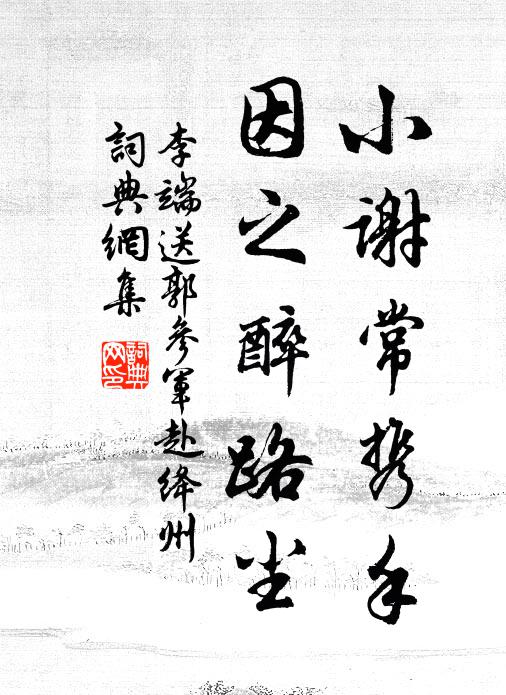 小谢常携手
因之醉路尘
李端送郭参军赴绛州
詞典網集
詞典网印